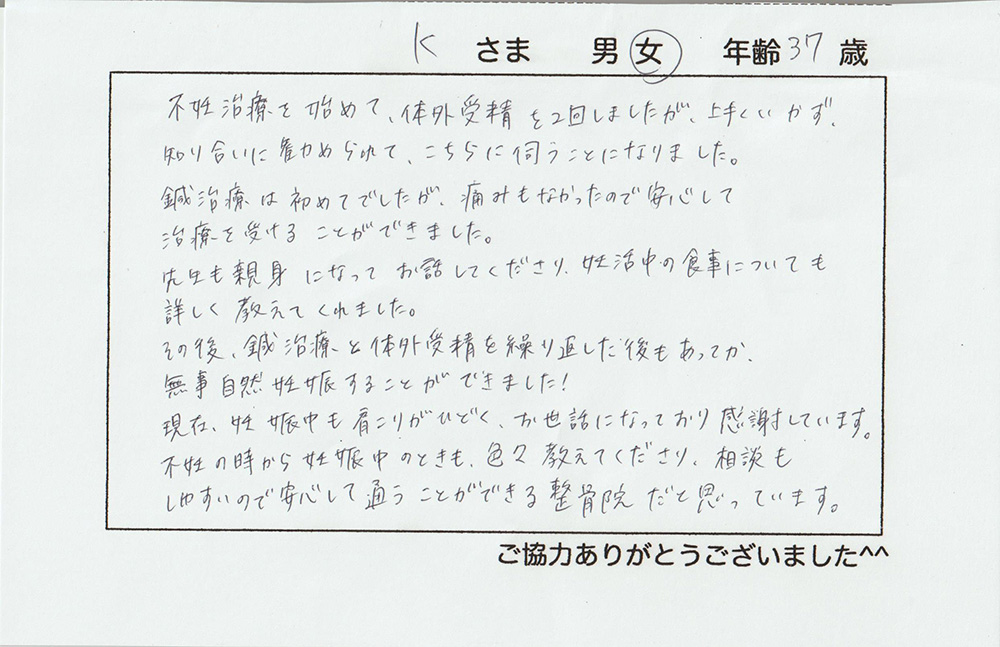 K さま 男 女 年齢 37 歳
不妊治療を始めて、体外受精を2回しましたが、上手くいかず、
知り合いに勧められて、こちらに伺うことになりました。
鍼治療は初めてでしたが、痛みもなかったので安心して
治療を受けることができました。
先生も親身になってお話してくださり、妊活中の食事についても
詳しく教えてくれました。
その後、鍼治療と体外受精を繰り返した後もあってか、
無事自然妊娠することができました!
現在、妊娠中も肩こりがひどく、お世話になっており感謝しています。
不妊の時から妊娠中のときも、色々教えてくださり、相談も
しやすいので安心して通うことができる整骨院だと思っています。
ご協力ありがとうございました^^